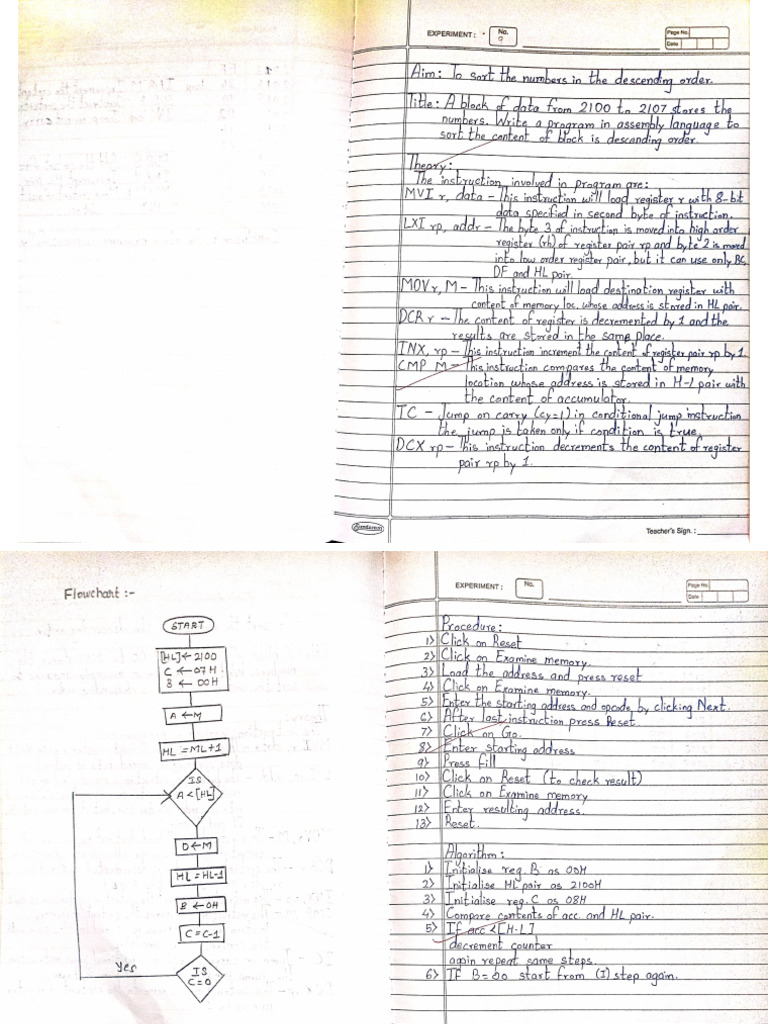 EXPERIMENT :
No.
9
Page No.
Date
Aim: To sort the numbers in the descending order.
Title: A block of data from 2100 to 2107 stores the
numbers. Write a program in assembly language to
sort the content of block is descanding order.
Theory:
The instruction involved in program are:
MVI r, data - This instruction will load register r with 8-bit
data specified in second byte of instruction.
LXI rp, addr - The byte 3 of instruction is moved into high order
register (rh) of register pair rp and byte 2 is moved
into low order register pair, but it can use only BC,
DF and HL pair.
MOV r, M - This instruction will load destination register with
content of memory loc. whose address is stored in HL pair.
DCR r - The content of register is decremented by 1 and the
results are stored in the same place.
INX, rp - This instruction increment the content of register pair rp by 1.
CMP M - This instruction compares the content of memory
location whose address is stored in H-L pair with
the content of accumulator.
JC - Jump on carry (cy=1) in conditional jump instruction
the jump is taken only if condition is true.
DCX rp - This instruction decrements the content of register
pair rp by 1.
Sundaram
Teacher's Sign. :
Flowchart :-
START
[HL] ← 2100
C ← 07H
B ← 00H
A ← M
HL = ML+1
IS
A < [HL]
D ← M
HL = HL-1
B ← 0H
C = C-1
Yes
IS
C=0
EXPERIMENT :
No.
Page No.
Date
Procedure:
1) Click on Reset
2) Click on Examine memory.
3) Load the address and press reset
4) Click on Examine memory.
5) Enter the starting address and opcode, by clicking Next.
6) After last instruction press Reset.
7) Click on Go.
8) Enter starting address
9) Press fill
10) Click on Reset (to check result)
11) Click on Examine memory
12) Enter resulting address.
13) Reset.
Algorithm:
1) Initialise reg. B as 00H
2) Initialise HL pair as 2100H
3) Initialise reg. C as 08H
4) Compare contents of acc. and HL pair.
5) If acc < [H-L]
decrement counter
again repeat same steps.
6) IF B=00 start from (I) step again.